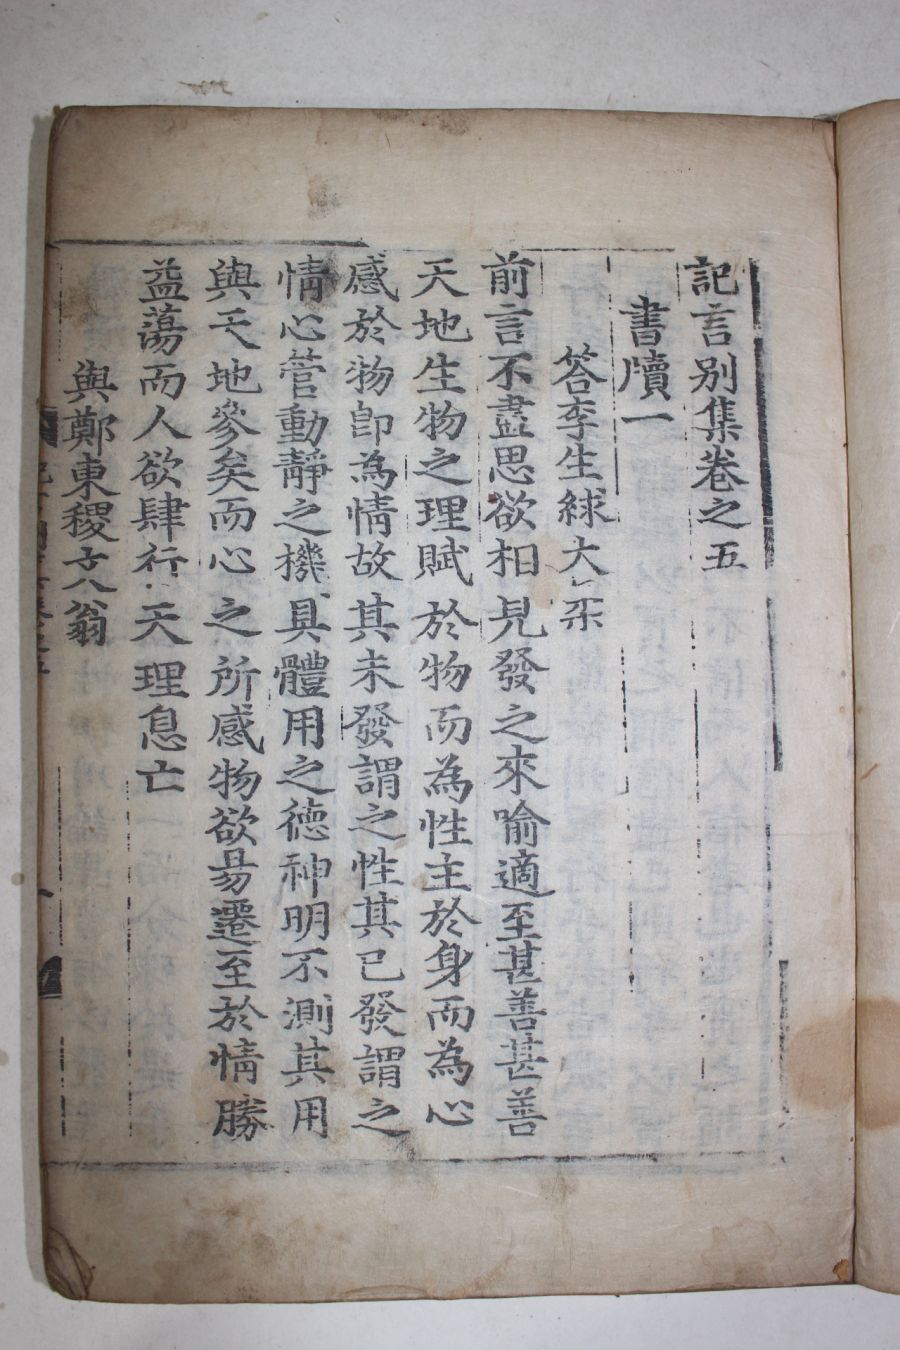 記言別集卷之五
書牘一
答李生絿大釆
前言不盡思欲相見發之來喻適至甚善甚善
天地生物之理賦於物而為性主於身而為心
感於物卽為情故其未發謂之性其已發謂之
情心管動靜之機具體用之德神明不測其用
與天地參矣而心之所感物欲昜遷至於情勝
益蕩而人欲肆行天理息亡
與鄭東稷翁